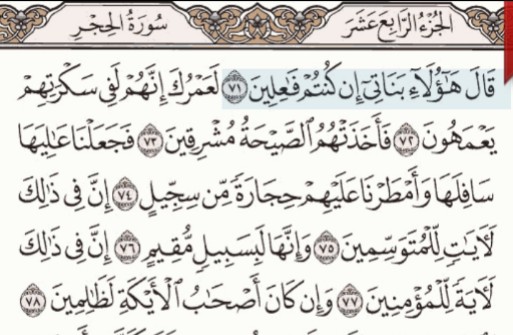 الجُزْءُ الرَّابِعَ عَشَرَ سُورَةُ الحِجْرِ
قَالَ هَٰٓؤُلَآءِ بَنَاتِىٓ إِن كُنتُمْ فَٰعِلِينَ ٧١ لَعَمْرُكَ إِنَّهُمْ لَفِى سَكْرَتِهِمْ
يَعْمَهُونَ ٧٢ فَأَخَذَتْهُمُ ٱلصَّيْحَةُ مُشْرِقِينَ ٧٣ فَجَعَلْنَا عَٰلِيَهَا
سَافِلَهَا وَأَمْطَرْنَا عَلَيْهِمْ حِجَارَةً مِّن سِجِّيلٍ ٧٤ إِنَّ فِى ذَٰلِكَ
لَءَايَٰتٍ لِّلْمُتَوَسِّمِينَ ٧٥ وَإِنَّهَا لَبِسَبِيلٍ مُّقِيمٍ ٧٦ إِنَّ فِى ذَٰلِكَ
لَءَايَةً لِّلْمُؤْمِنِينَ ٧٧ وَإِن كَانَ أَصْحَٰبُ ٱلْأَيْكَةِ لَظَٰلِمِينَ ٧٨